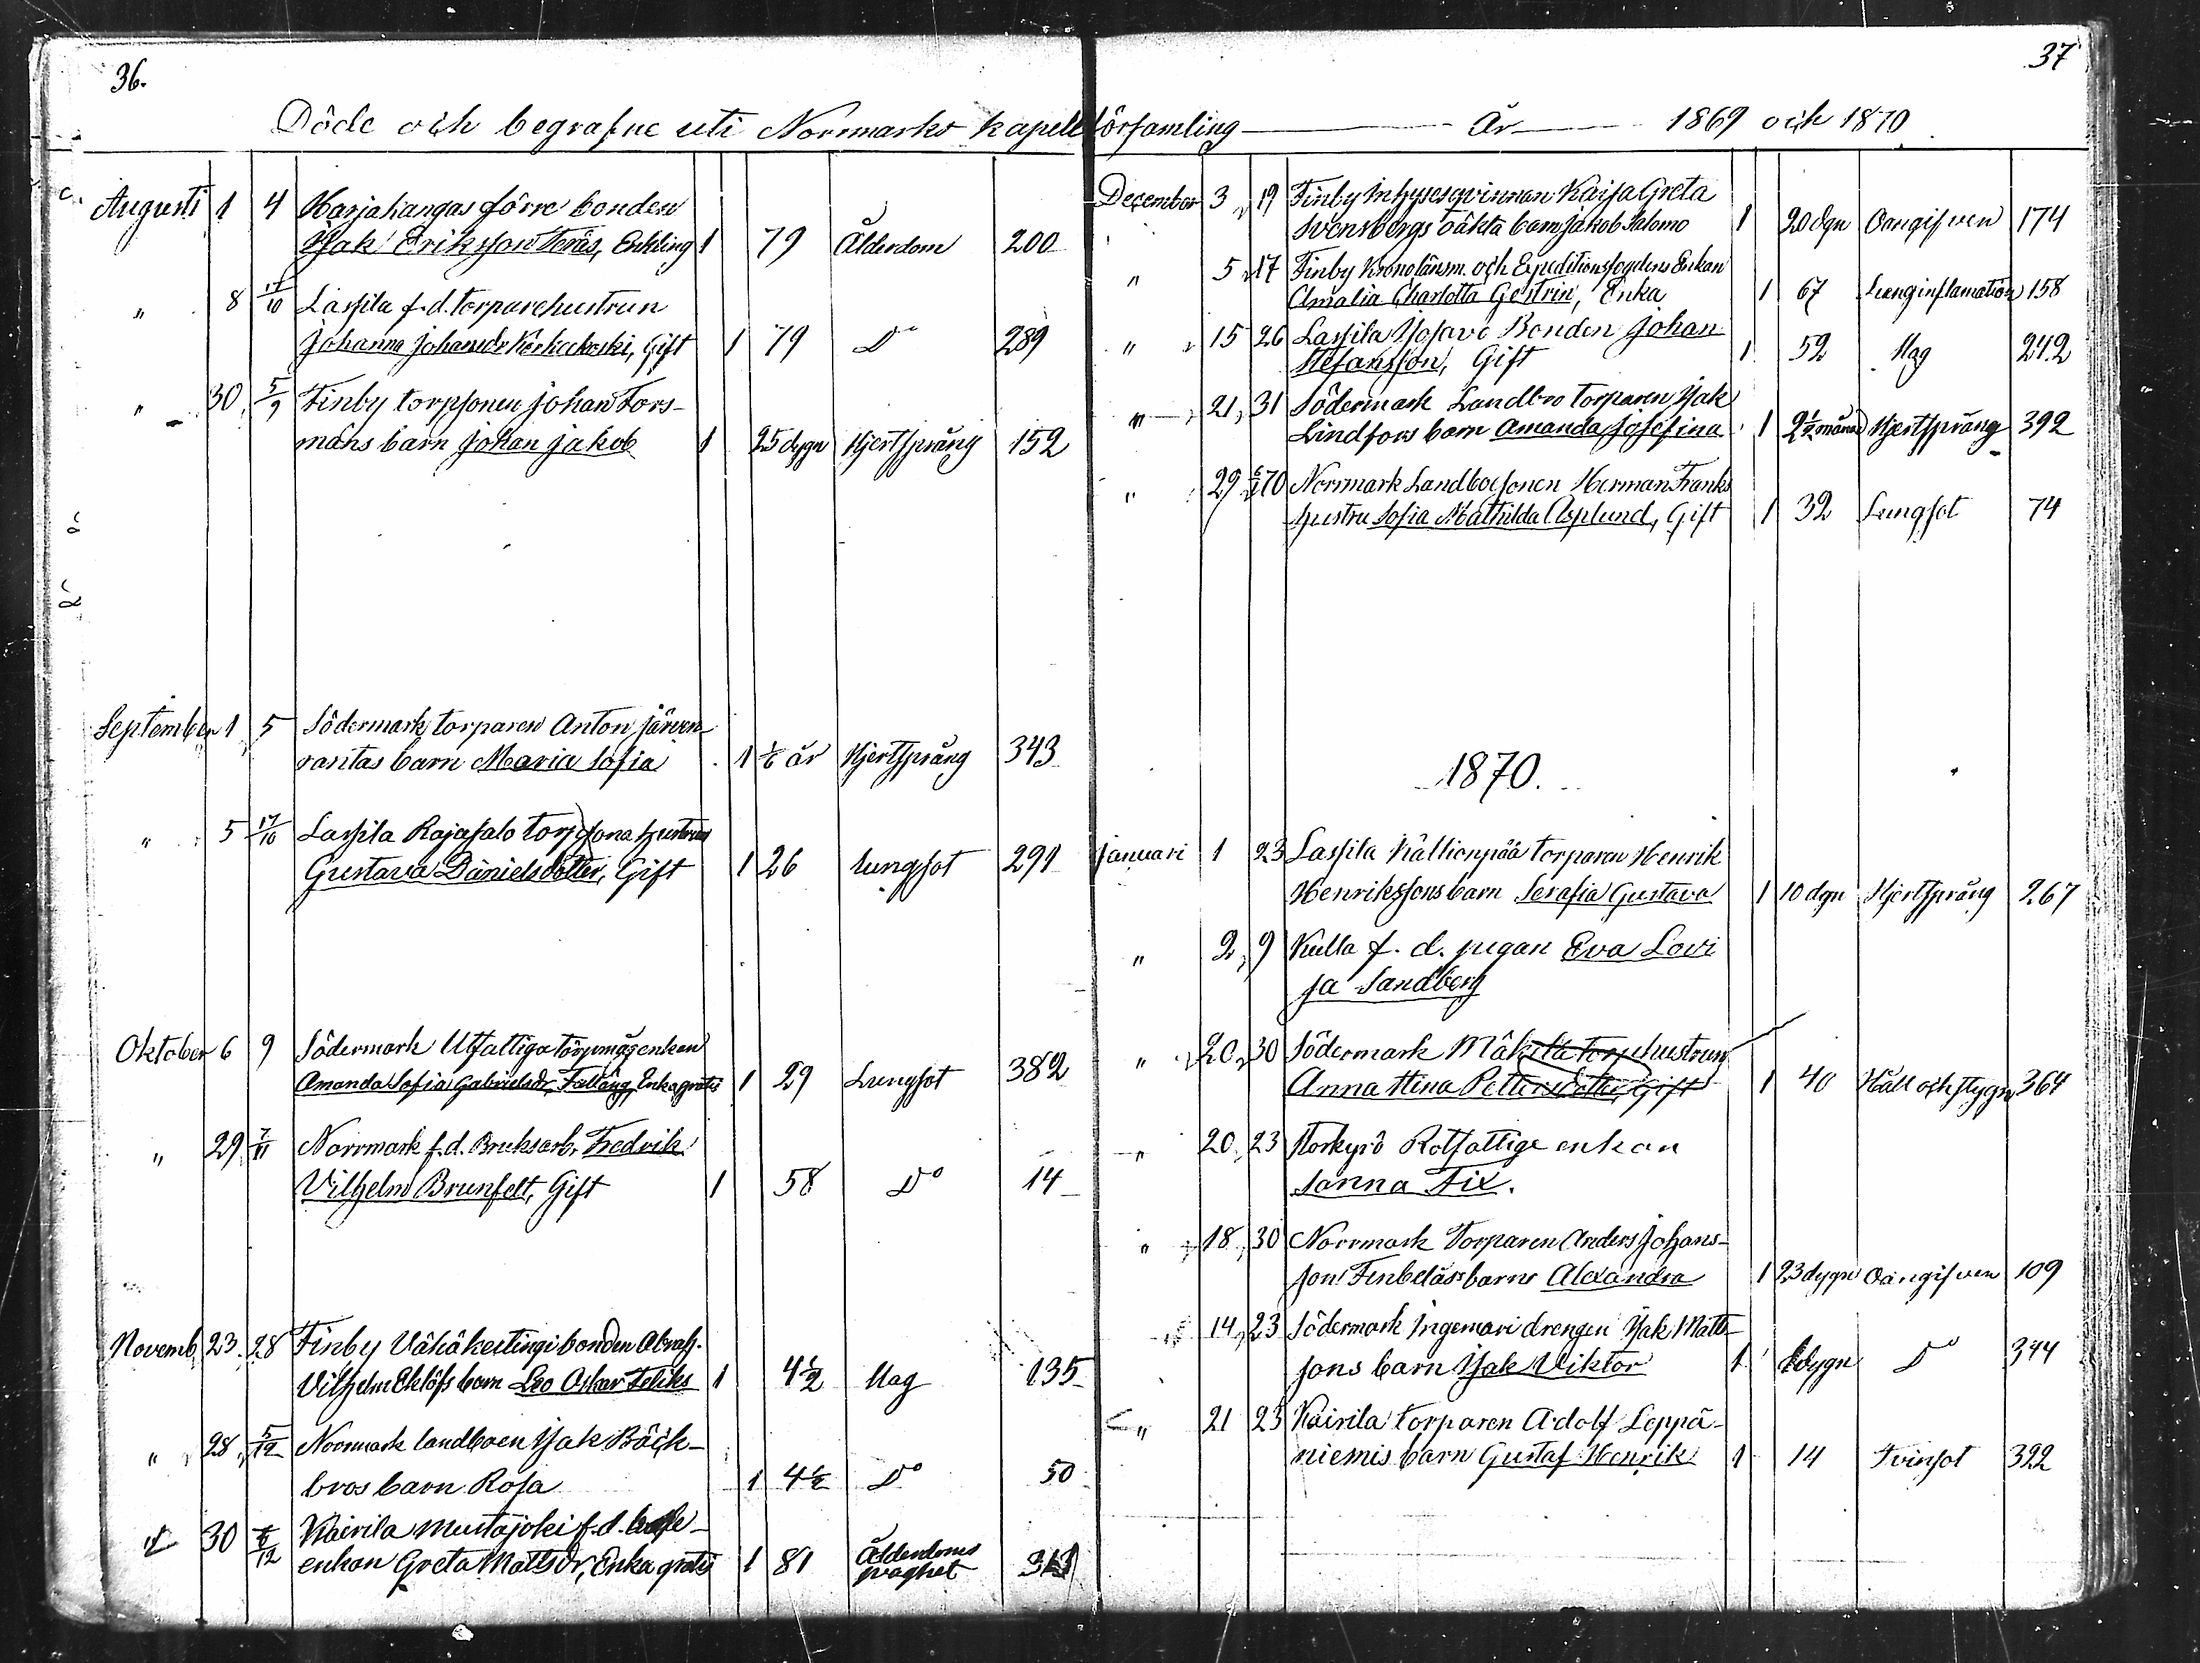 36.
Döde och begrafne uti Norrmarks kapell
Augusti 1 4 Harjakangas förre bonden
Isak Eriksson Teräs, Enkling 1 79 Ålderdom 200
" 8 17/10 Lassila f.d. torparehustrun
Johanna Johansdr Korkeekoski, Gift 1 79 Do 289
" 30 5/9 Finby torpsonen Johan Fors-
mans barn Johan Jakob 1 25 dygn Hjertsprång 152
September 1 5 Södermark torparen Anton Järven-
rantas barn Maria Sofia 1 1/6 år Hjertsprång 343
" 5 17/10 Lassila Rajasalo torpsona hustrun
Gustava Danielsdotter, Gift 1 26 Lungsot 291
Oktober 6 9 Södermark Utfattiga enkan
Amanda Sofia Gabrielsdr, Enka gratis 1 29 Lungsot 382
" 29 7/11 Norrmark f.d. Bruksarb. Fredrik
Vilhelm Brunfelt, Gift 1 58 Do 14
Novemb 23 28 Finby bonden Abrah.
Vilhelm Eklöfs barn Leo Oskar Feliks 1 4 1/2 Mag 135
" 28 5/12 Norrmark landboen Isak Bäck-
bros barn Rosa 1 4 1/2 Do 50
" 30 /12 Kairila Mustajoki f.d.
enkan Greta Mattsdr, Enka gratis 1 81 Ålderdoms
svaghet
37
församling År 1869 och 1870
December 3 19 Finby Inhysesqvinnan Kaisa Greta
Svensbergs oäkta barn Jakob Salomo 1 20 dgn Oangifven 174
" 5 17 Finby Kronolänsm. och Expeditionsfogdens Enkan
Amalia Charlotta Gestrin, Enka 1 67 Lunginflamation 158
" 15 26 Lassila Bonden Johan
Stefansson, Gift 1 52 Mag 242
" 21 31 Södermark Landbo torparen Isak
Lindfors barn Amanda Josefina 1 2 1/2 månad Hjertsprång 392
" 29 70 Norrmark Landboesonen Herman Franks
hustru Sofia Mathilda Asplund, Gift 1 32 Lungsot 74
1870.
Januari 1 23 Lassila Kallionpää torparen Henrik
Henrikssons barn Serafia Gustava 1 10 dgn Hjertsprång 267
" 2 9 Kulla f. d. pigan Eva Lovi
sa Sandberg
" 20 30 Södermark Mäkilä torp hustrun
Anna Stina Pettersdotter, Gift 1 40 Håll och stygn 364
" 20 23 Storkyrö Rotfattige enkan
Sanna Fix.
" 18 30 Norrmark Torparen Anders Johans-
son barns Alexandra 1 23 dygn Oangifven 109
" 14 23 Södermark Ingemari drengen Isak Matts-
sons barn Isak Viktor 1 dygn Do 344
" 21 23 Kairila torparen Adolf Leppä-
niemis barn Gustaf Henrik 1 14 Tvinsot 322